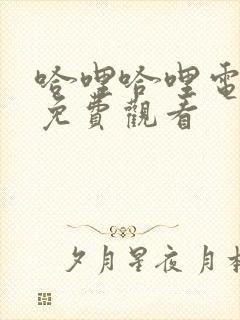 哈哩哈哩電
免費觀看
夕月星夜 月